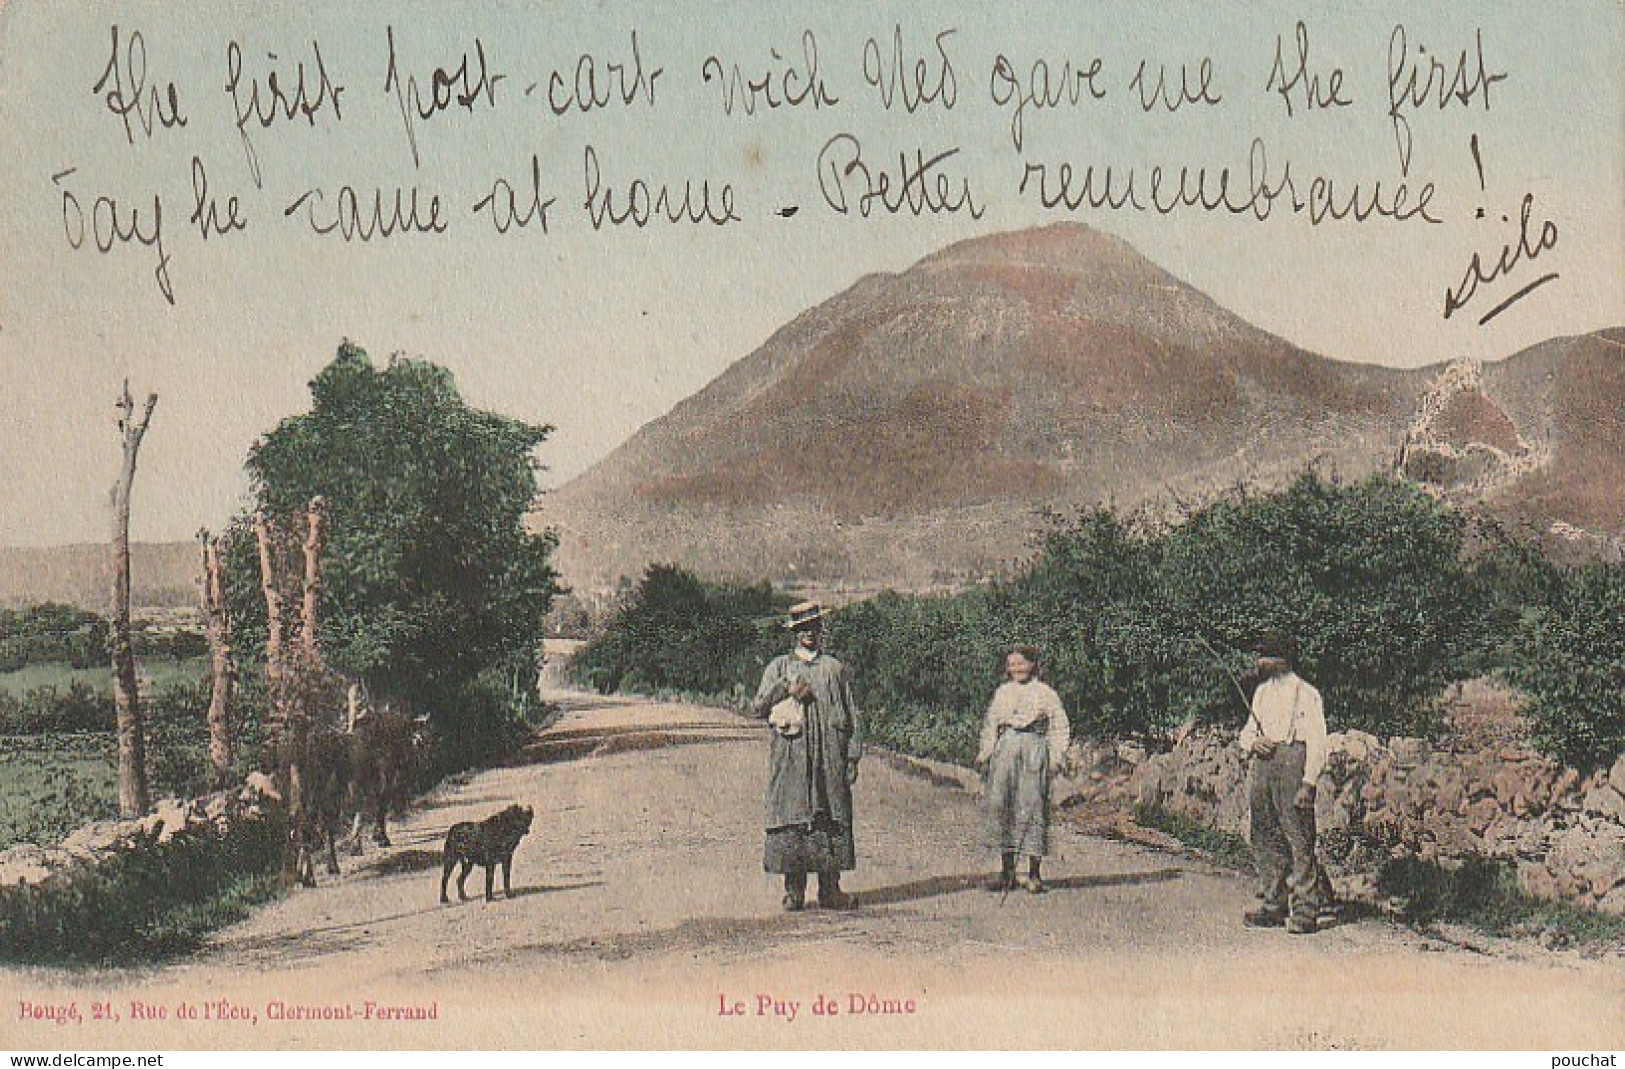 the first post-cart wich Ned gave me the first
day he came at home - Better remembrance!
Lilo
Bougé, 21, Rue de l'Écu, Clermont-Ferrand
Le Puy de Dôme
www.delcampe.net
pouchat